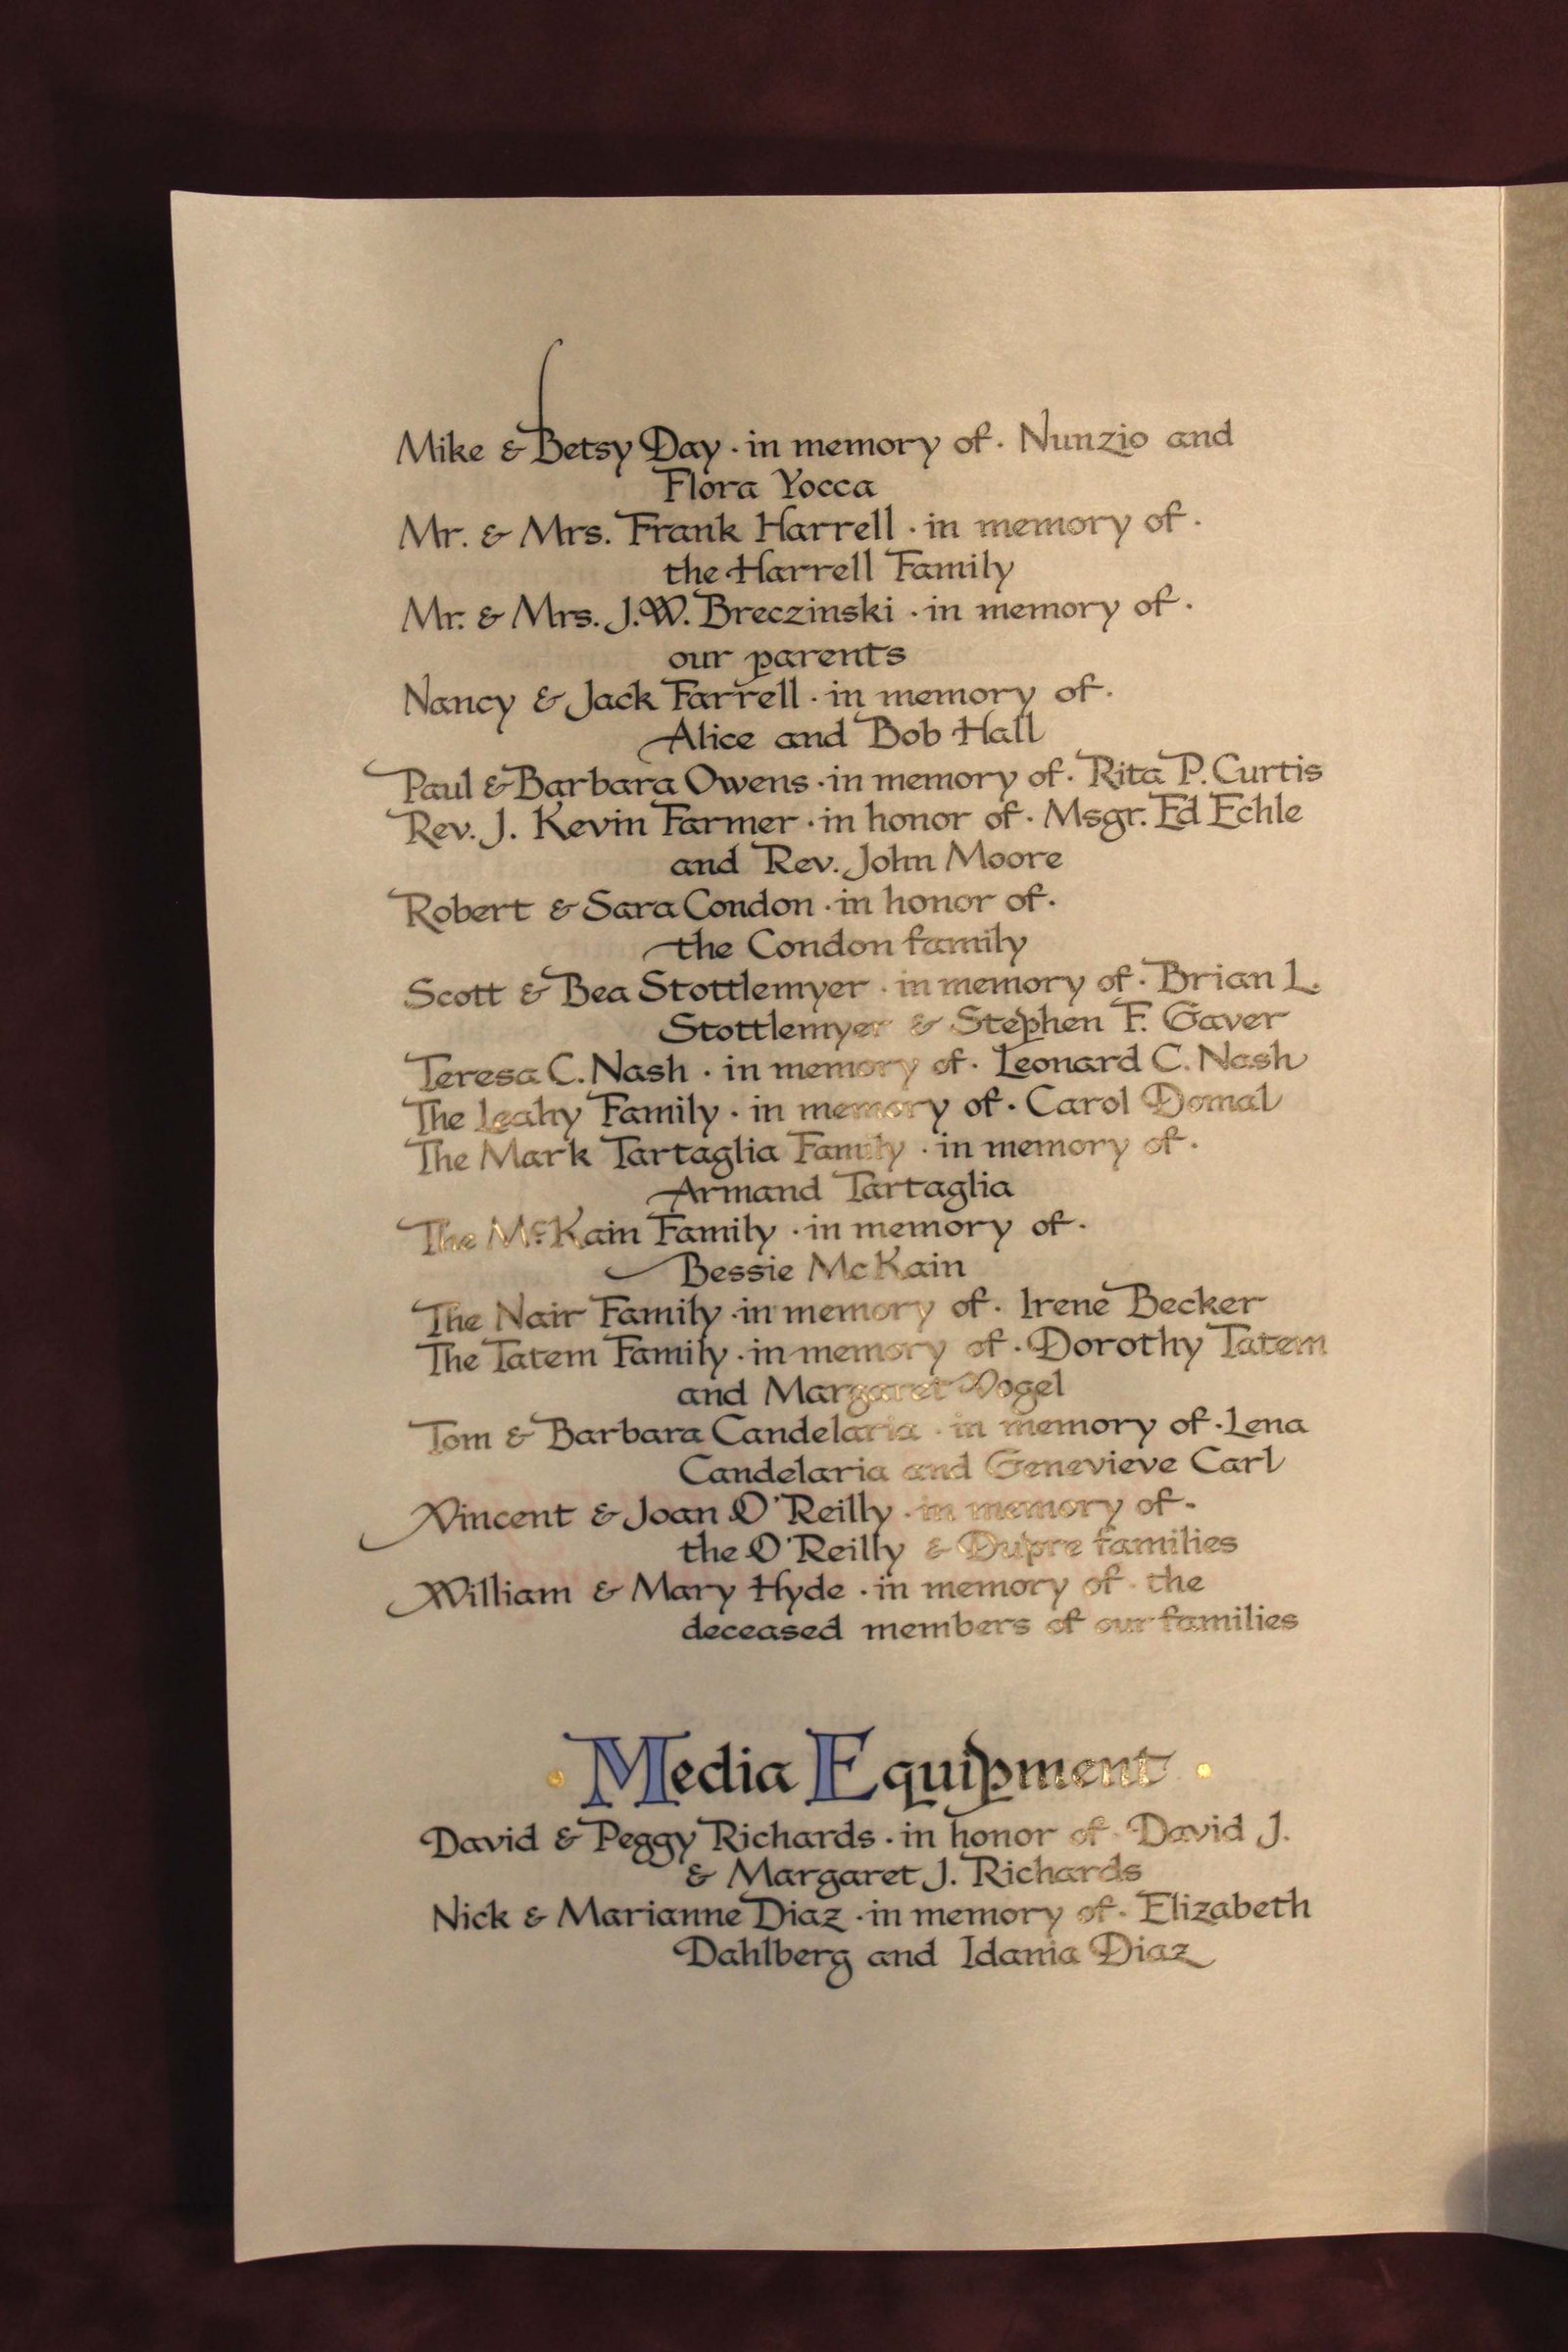 Mike & Betsy Day · in memory of · Nunzio and
Flora Yocca
Mr. & Mrs. Frank Harrell · in memory of ·
the Harrell Family
Mr. & Mrs. J.W. Breczinski · in memory of ·
our parents
Nancy & Jack Farrell · in memory of ·
Alice and Bob Hall
Paul & Barbara Owens · in memory of · Rita P. Curtis
Rev. J. Kevin Farmer · in honor of · Msgr. Ed Echle
and Rev. John Moore
Robert & Sara Condon · in honor of ·
the Condon family
Scott & Bea Stottlemyer · in memory of · Brian L.
Stottlemyer & Stephen F. Gaver
Teresa C. Nash · in memory of · Leonard C. Nash
The Leahy Family · in memory of · Carol Domal
The Mark Tartaglia Family · in memory of ·
Armand Tartaglia
The McKain Family · in memory of ·
Bessie McKain
The Nair Family · in memory of · Irene Becker
The Tatem Family · in memory of · Dorothy Tatem
and Margaret Vogel
Tom & Barbara Candelaria · in memory of · Lena
Candelaria and Genevieve Carl
Vincent & Joan O'Reilly · in memory of ·
the O'Reilly & Dupre families
William & Mary Hyde · in memory of · the
deceased members of our families
· Media Equipment ·
David & Peggy Richards · in honor of · David J.
& Margaret J. Richards
Nick & Marianne Diaz · in memory of · Elizabeth
Dahlberg and Idania Diaz